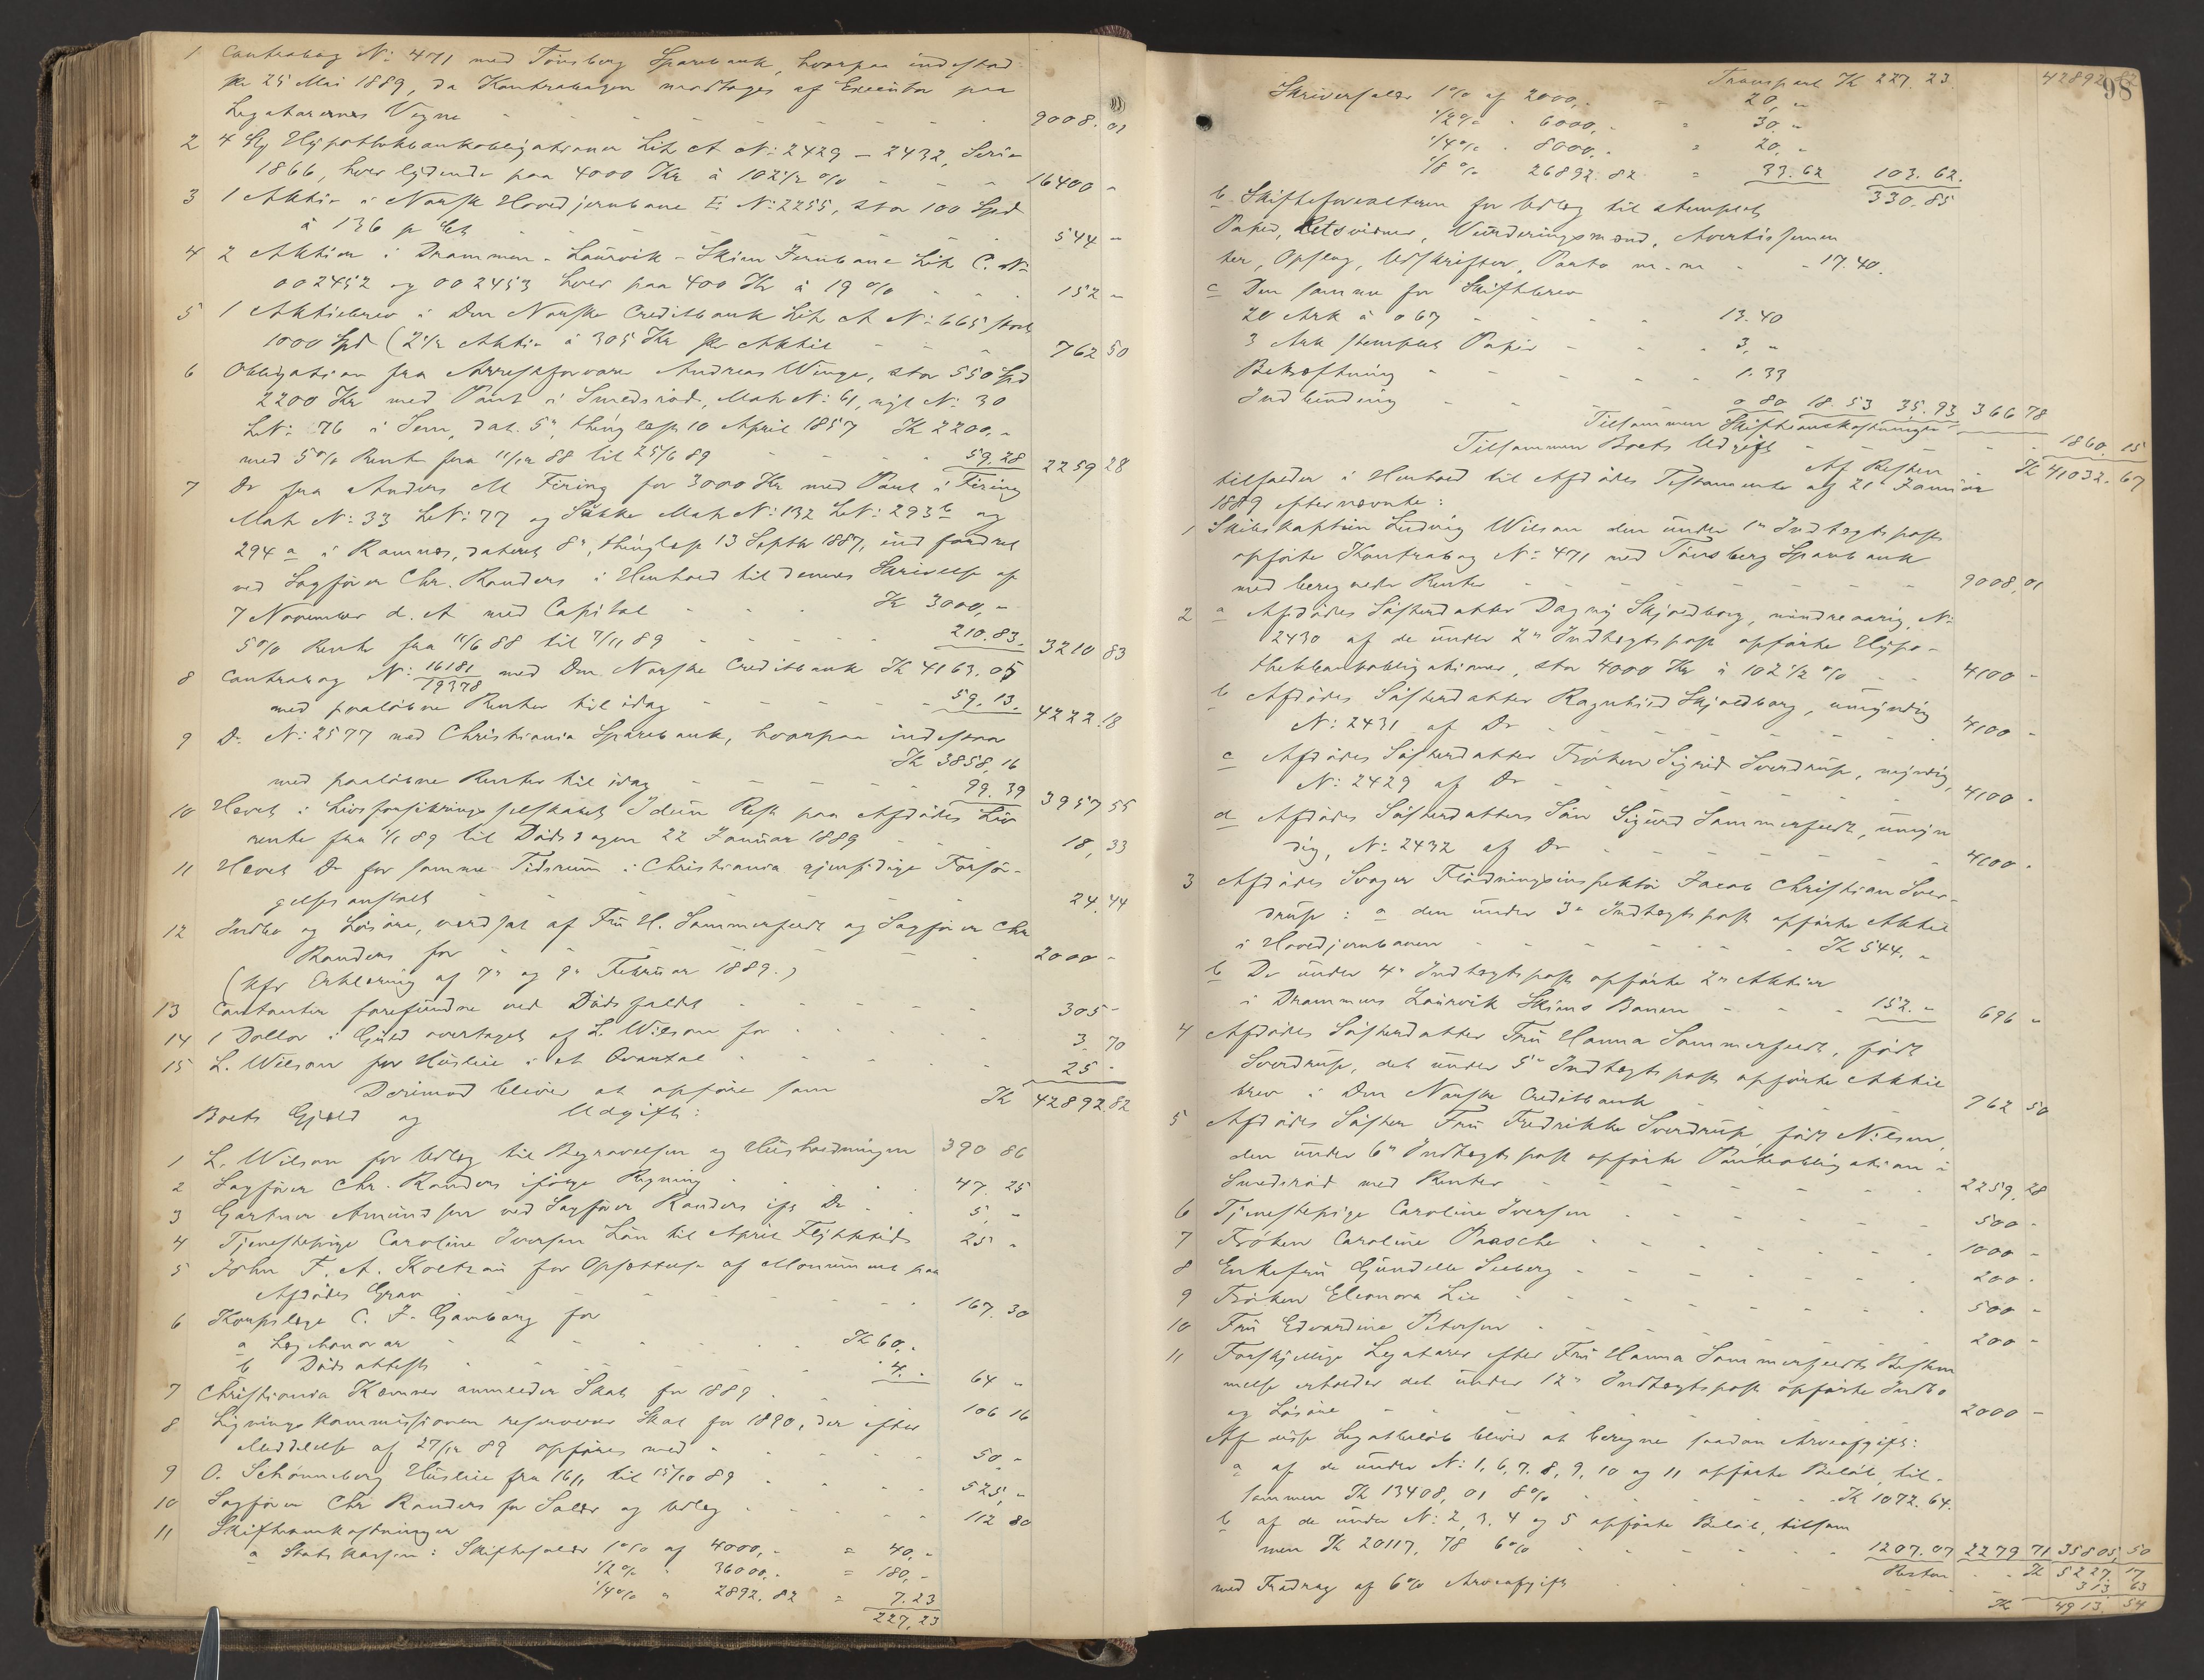 1 Contrabog N: 471 med Tönsberg Sparebank, hvorpaa indestod
pr 25 Mai 1889, da Kontrabogen modtoges af Executor paa
Legatarernes Vegne - - - 9008.01
2 4 Hypothekbankobligationer Litr A N: 2429 - 2432, Serie
1866, hver lydende paa 4000 Kr à 102 1/2 % - - 16400 -
3 1 Aktie i Norsk Hovedjernbane E N: 2255, stor 100 Spd
à 136 p Ct - - - 544 -
4 2 Aktier i Drammen - Laurvik - Skien Jernbane Litr C. N:
002452 og 002453 hver paa 400 Kr à 19 % - - - 152 -
5 1 Aktiebrev i Den Norske Creditbank Litr A N: 665 stort
1000 Spd (2 1/2 Aktie à 305 Kr pr Aktie - - - 762 50
6 Obligation fra Arrestforvarer Andreas Winge, stor 550 Spd
2200 Kr med Pant i Smedsröd, Matr N: 61, nyt N: 30
LN: 76 i Sem, dat. 5te, thinglæst 10 April 1857 Kr 2200,-
med 5 % Rente fra 11/12 88 til 25/6 89 - - 59.28 2259 28
7 Do fra Anders M Firing for 3000 Kr med Pant i Firing
Matr N: 33 LN: 77 og Sukke Matr N: 132 LN: 293b og
294 a i Ramnes, dateret 8de, thinglæst 13 Septbr 1887, indfordret
ved Sagförer Chr. Randers i Henhold til dennes Skrivelse af
7 November d. A med Capital - - - Kr 3000,-
5% Rente fra 11/6 88 til 7/11 89 - - - 210.83. 3210 83
8 Contrabog N: 16181/19378 med Den Norske Creditbank Kr 4163.05
med paalöbne Renter til idag - - - 59.13. 4222.18
9 Do N: 2577 med Christiania Sparebank, hvorpaa indestaar
Kr 3858,16
med paalöbne Renter til idag - - - 99.39 3957 55
10 Hævet i Livsforsikringsselskabet Idun Rest paa Afdödes Liv
rente fra 1/1 89 til Dödsdagen 22 Januar 1889 - - - 18,33
11 Hævet Do for samme Tidsrum i Christiania gjensidige Forsör-
gelsesanstalt - - - 24.44
12 Indbo og Lösöre, værdsat af Fru H. Sommerfeldt og Sagförer Chr
Randers for - - - 2000 -
(Kfr Erklæring af 7de og 9de Februar 1889.)
13 Contanter forefundne ved Dödsfaldet - - - 305 -
14 1 Dollar i Guld overtaget af L. Wilson for - - - 3.70
15 L. Wilson for Husleie i et Qvartal - - - 25 -
Kr 42892.82
Derimod bliver at opföre som
Boets Gjæld og Udgift:
1 L. Wilson for Udlæg til Begravelsen og Husholdningen 390 86
2 Sagförer Chr. Randers ifölge Regning - - - 47.25
3 Gartner Amundsen ved Sagförer Randers ifg Do - - 5,-
4 Tjenestepige Caroline Iversen Lön til April Flyttetid 25 -
5 John F. A. Koltzau for Opsættelse af Monument paa
Afdödes Grav - - - 167.30
6 Korpslæge C. F. Gamborg for
a Lægehonorar - - - Kr 60,-
b Dödsattest - - - 4.- 64 -
7 Christiania Kæmner anmelder Skat for 1889 - - - 106 16
8 Ligningskommissionen reserverer Skat for 1890, der efter
Meddelelse af 27/12 89 opföres med - - - 50.-
9 O. Schönneberg Husleie fra 16/1 til 15/10 89 - - - 525,-
10 Sagförer Chr Randers for Salær og Udlæg - - - 112 80
11 Skifteomkostninger
a Statskassen: Skiftesalær 1% af 4000,- = 40,-
1/2 % " 36000,- = 180,-
1/4 % " 2892.82 = 7.23
227,23
98
Transport Kr 227.23. 42892 82
Skriversalær 1% af 2000,- = 20,-
1/2 % " 6000,- = 30.-
1/4 % " 8000,- = 20.-
1/8 % 26892.82 = 33.62 103.62.
330.85
b Skifteforvalteren for Udlæg til stemplet
Papir, Retsvidner, Vurderingsmænd, Avertissemen
ter, Opslag, Udskrifter, Porto m. m - - 17.40.
c Den samme for Skiftebrev
20 Ark à 0 67 - - - 13.40
3 Ark stemplet Papir - - - 3,-
Bekræftning - - - 1.33
Indbinding - - - 0 80 18.53 35.93 366 78
Tilsammen Skifteomkostninger
Tilsammen Boets Udgift - - - 1860.15
Af Resten - Kr 41032.67
tilfalder i Henhold til Afdödes Testamente af 21de Januar
1889 efternævnte:
1 Skibskaptein Ludvig Wilson den under 1ste Indtægtspost
opförte Kontrabog N: 471 med Tönsberg Sparebank
med beregnede Renter - - - 9008,01
2 a Afdödes Sösterdatter Dagny Skjoldborg, mindreaarig, N:
2430 af de under 2den Indtægtspost opförte Hypo-
thekbankobligationer, stor 4000 Kr à 102 1/2 % - - 4100 -
b Afdödes Sösterdatter Ragnhild Skjoldborg, umyndig
N: 2431 af Do - - - 4100 -
c Afdödes Sösterdatter Fröken Sigrid Sverdrup, myndig,
N: 2429 af Do - - - 4100 -
d Afdödes Sösterdatters Sön Sigurd Sommerfeldt, umyn
dig, N: 2432 af Do - - - 4100 -
3 Afdödes Svoger Flödningsinspektör Jacob Christian Sver-
drup: a den under 3die Indtægtspost opförte Aktie
i Hovedjernbanen - - - Kr 544.-
b De under 4de Indtægtspost opförte 2de Aktier
i Drammens Laurvik Skiens Banen - - - 152.- 696 -
4 Afdödes Sösterdatter Fru Hanna Sommerfeldt, födt
Sverdrup, det under 5te Indtægtspost opförte Aktie
brev i Den Norske Creditbank - - - 762 50
5 Afdödes Söster Fru Fredrikke Sverdrup, födt Nilsen,
den under 6te Indtægtspost opförte Panteobligation i
Smedsröd med Renter - - - 2259.28
6 Tjenestepige Caroline Iversen - - - 500 -
7 Fröken Caroline Paasche - - - 1000 -
8 Enkefru Gundelle Seeberg - - - 200 -
9 Fröken Eleonora Lie - - - 500 -
10 Fru Edvardine Petersen - - - 200 -
11 Forskjellige Legatarer efter Fru Hanna Sommerfeldts Bestem
melse erholder det under 12te Indtægtspost opförte Indbo
og Lösöre - - - 2000 -
Af disse Legatbelöb bliver at beregne saadan Arveafgift:
a af de under N: 1, 6, 7, 8, 9, 10 og 11 opförte Belöb, til-
sammen Kr 13408,01 8% - - - Kr 1072.64.
b af de under N: 2, 3, 4 og 5 opförte Belöb, tilsam
men Kr 20117,78 6% - - - 1207.07 2279 71 35805,50
Resten - - Kr 5227.17
med Fradrag af 6% Arveafgift - - - 313 63
Kr 4913.54